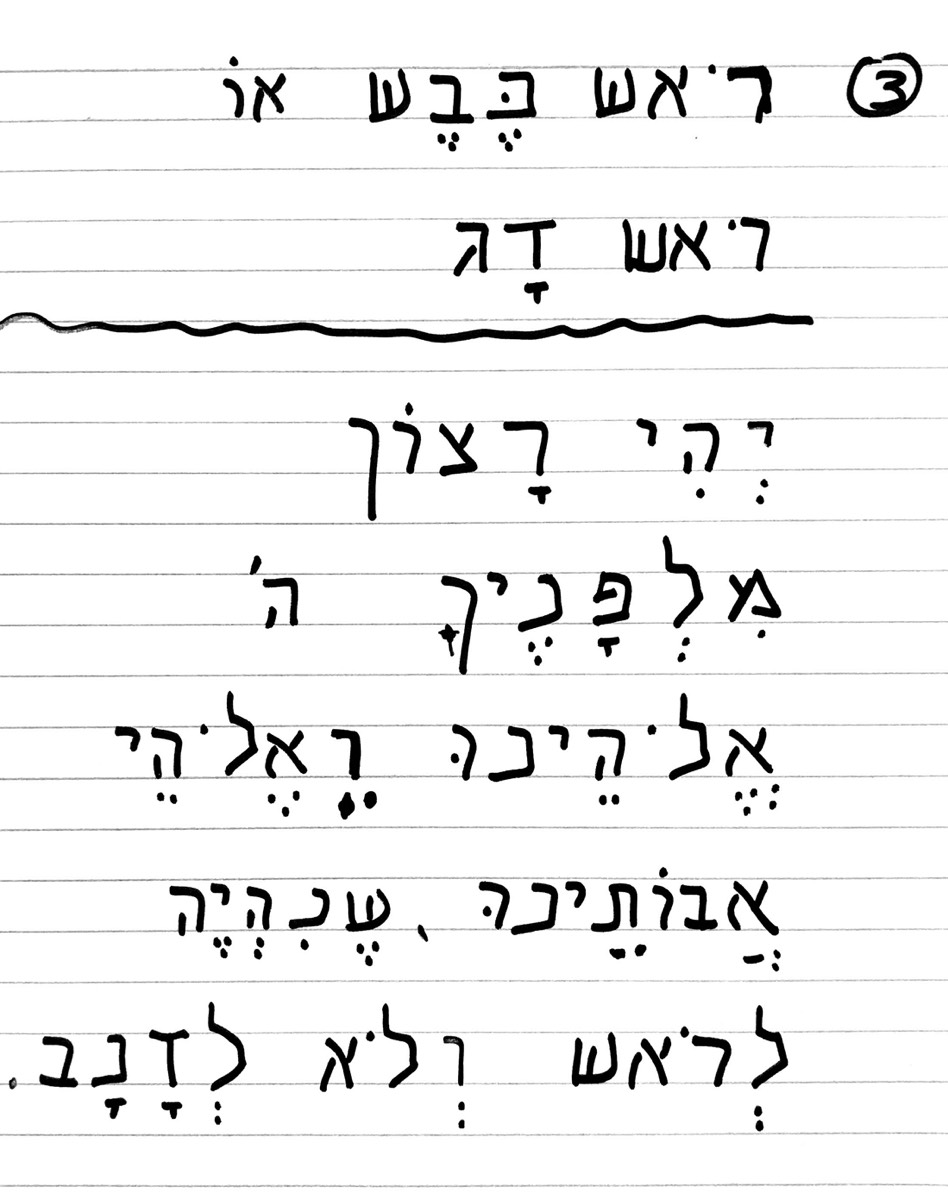 ③ רֹאש כֶּבֶש אוֹ
רֹאש דָג
יְהִי רָצוֹן
מִלְפָנֶיךָ ה'
אֱלֹהֵינוּ וֵאֶלֹהֵי
אֲבוֹתֵינוּ, שֶנִהְיֶה
לְרֹאש וְלֹא לְזָנָב.